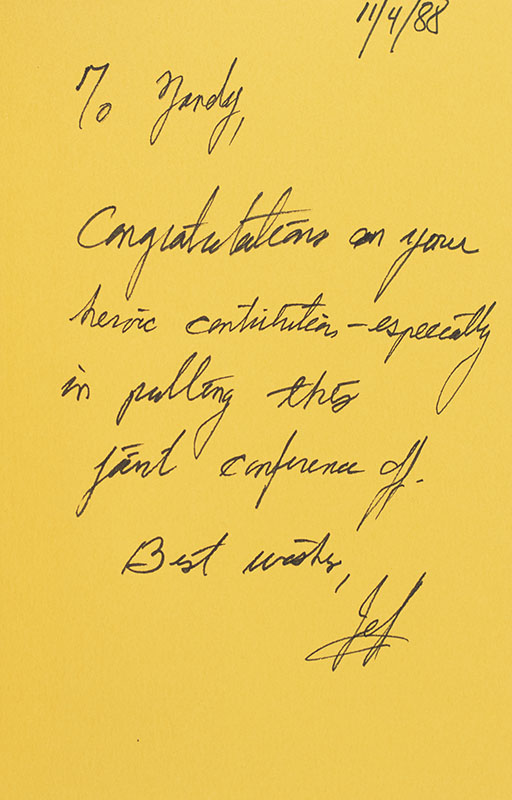 11/4/88
To Nandy,
Congratulations on your
heroic contributions - especially
in pulling this
joint conference off.
Best wishes,
Jeff